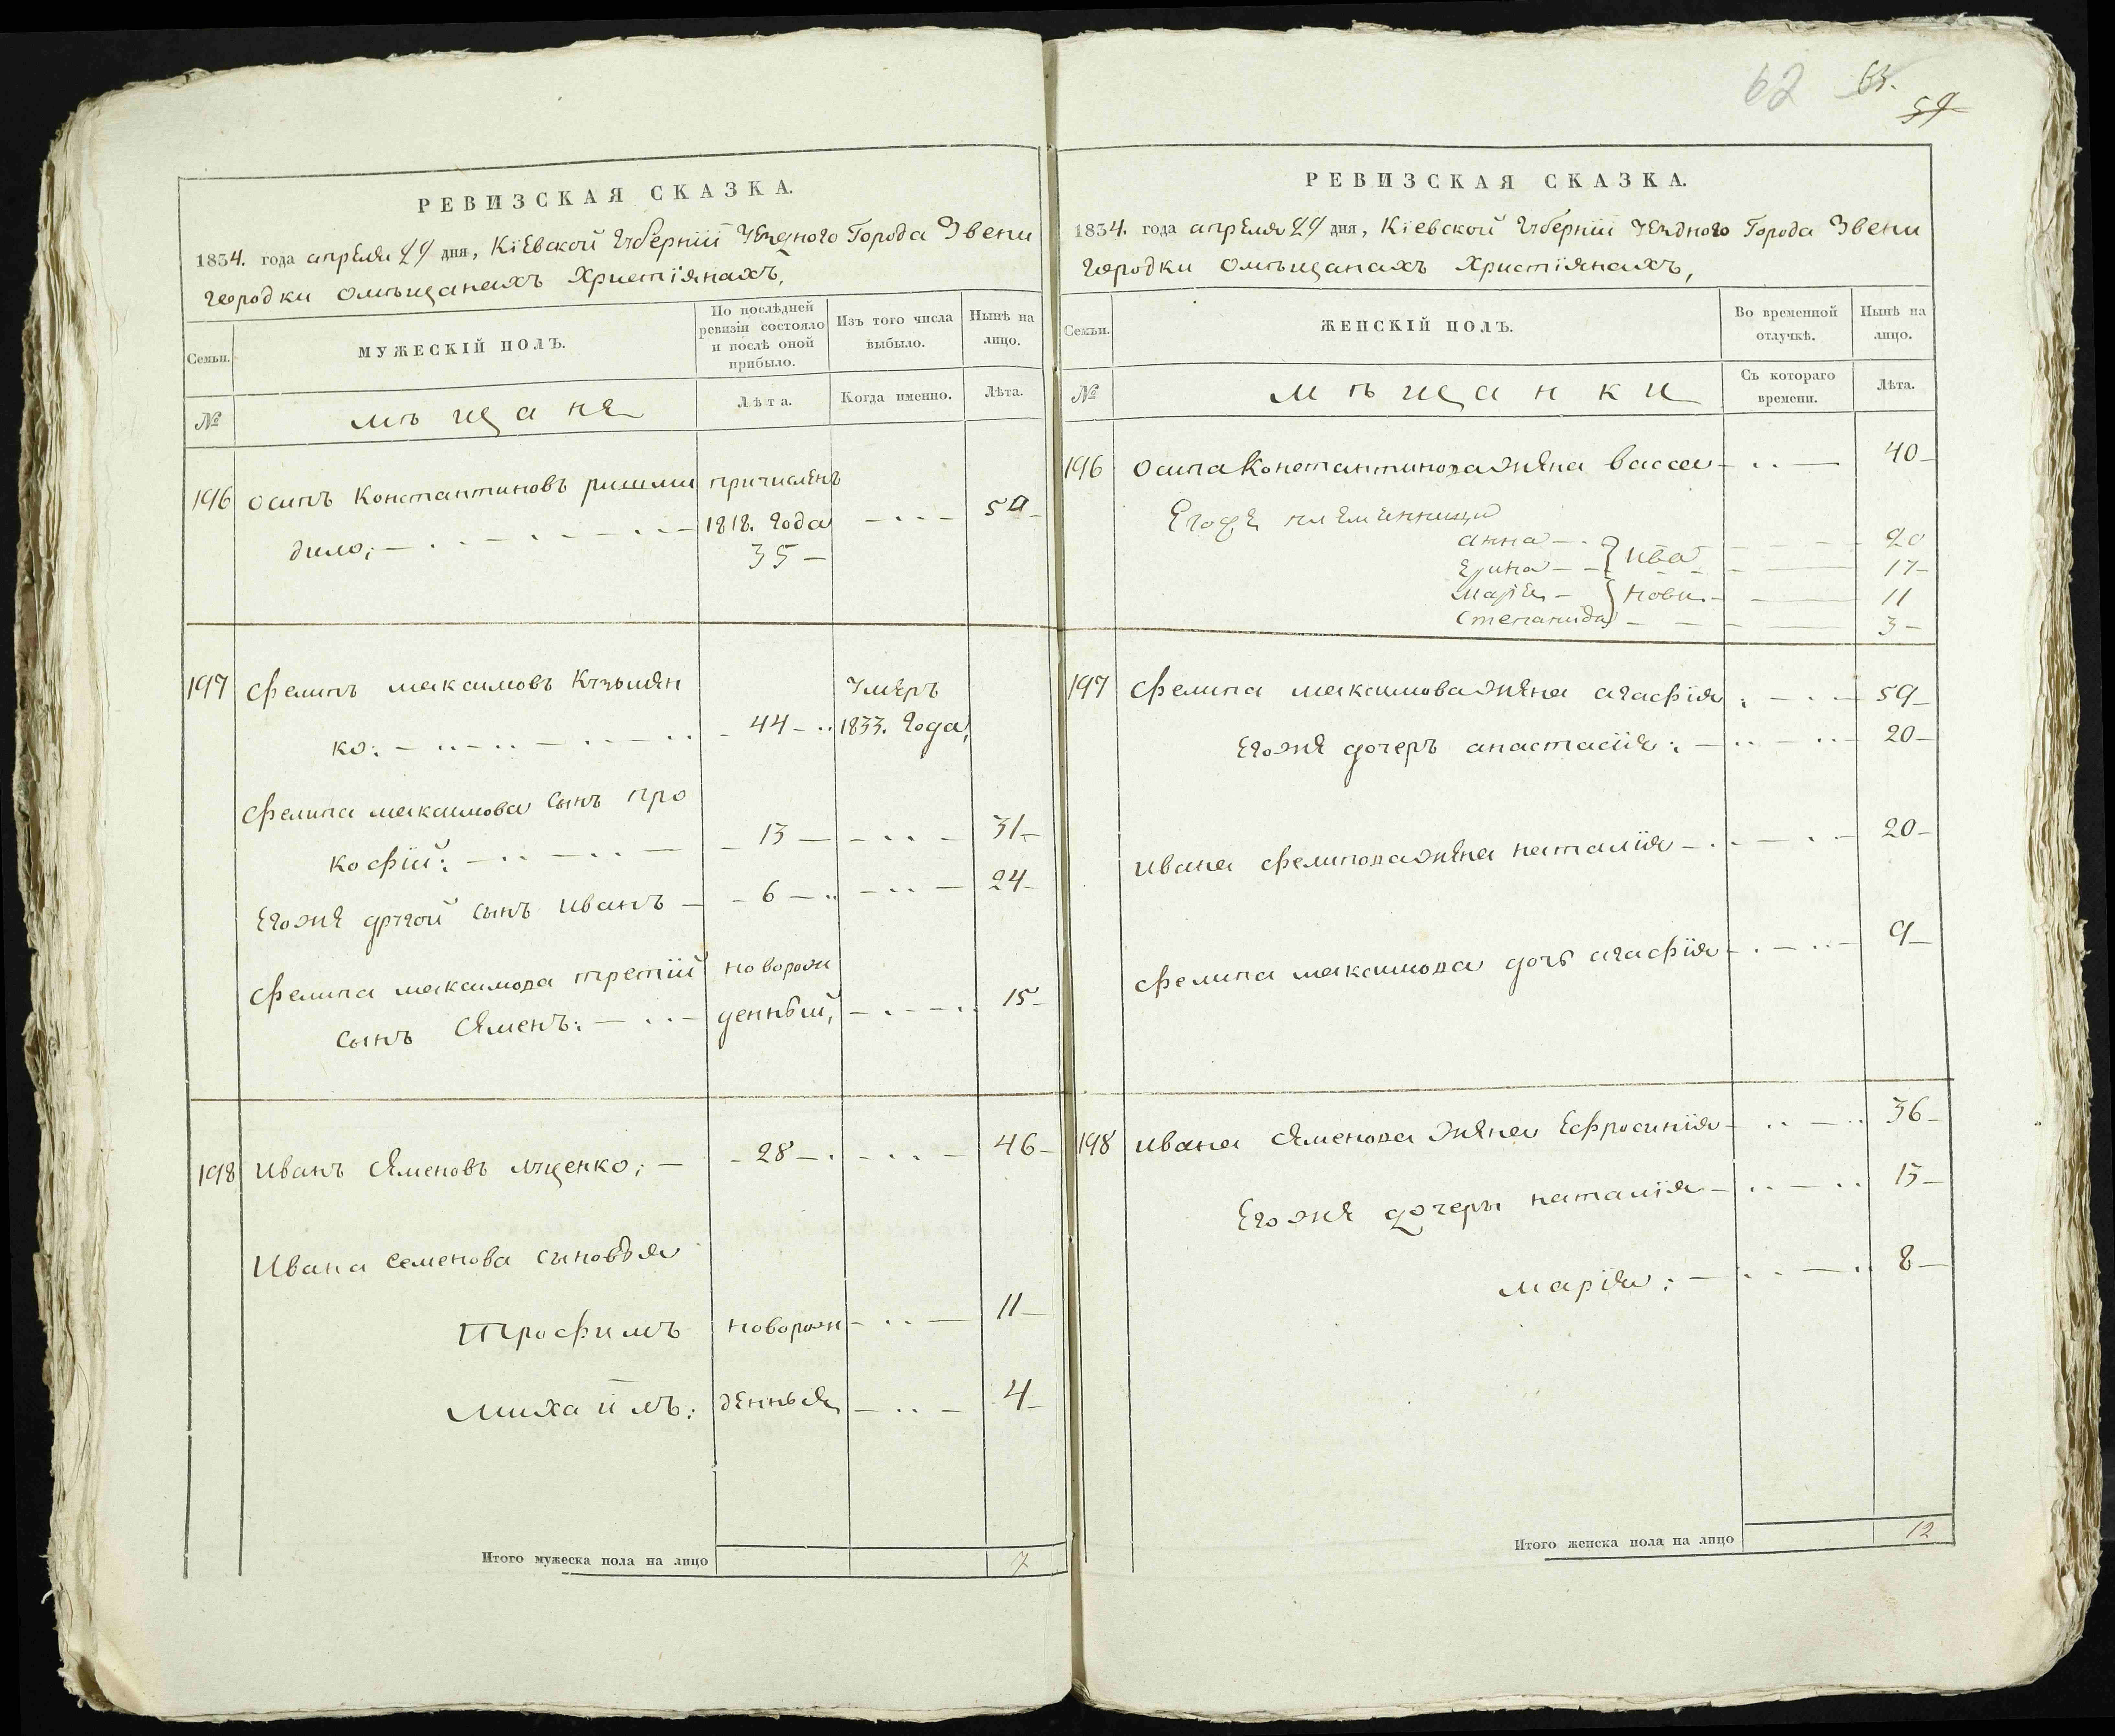 62 63. 59
РЕВИЗСКАЯ СКАЗКА.
1834. года апреля 29 дня, Кіевской Губерніи Уезднаго Города Звени
городки омѣщанахъ Христіянахъ,
Семьи.
МУЖЕСКІЙ ПОЛЪ.
По послѣдней ревизіи состояло и послѣ оной прибыло.
Изъ того числа выбыло.
Нынѣ на лицо.
№
мѣщане
Лѣта.
Когда именно.
Лѣта.
196 Осипъ Константиновъ причисленъ
дило; 1818. года 59
35
197 Фелипъ максимовъ Кузьмен Умеръ
ко: 44 1833. года,
Фелипа максимова сынъ про
кофій: 13 31
Егоже другой сынъ Иванъ 6 24
Фелипа максимова третій новорож
сынъ Семенъ: денный, 15
198 Иванъ Семеновъ Луценко; 28 46
Ивана Семенова сыновья
Трофимъ новорож 11
Михаилъ: денные 4
Итого мужеска пола на лицо 7
РЕВИЗСКАЯ СКАЗКА.
1834. года апреля 29 дня, Кіевской Губерніи Уезднаго Города Звени
городки омѣщанахъ Христіянахъ,
Семьи.
ЖЕНСКІЙ ПОЛЪ.
Во временной отлучкѣ.
Нынѣ на лицо.
№
мѣщанки
Съ котораго времени.
Лѣта.
196 Осипа Константинова жена васса 40
Егоже племенници
анна 20
Ерина Ива 17
Марія нови 11
Степанида 3
197 Фелипа максимова жена агафія: 59
Егоже дочеръ анастасія: 20
Ивана Фелипова жена наталія 20
Фелипа максимова дочь агафія 9
198 Ивана Семенова жена Ефросинія 36
Егоже дочеры наталія 13
марія: 8
Итого женска пола на лицо 12